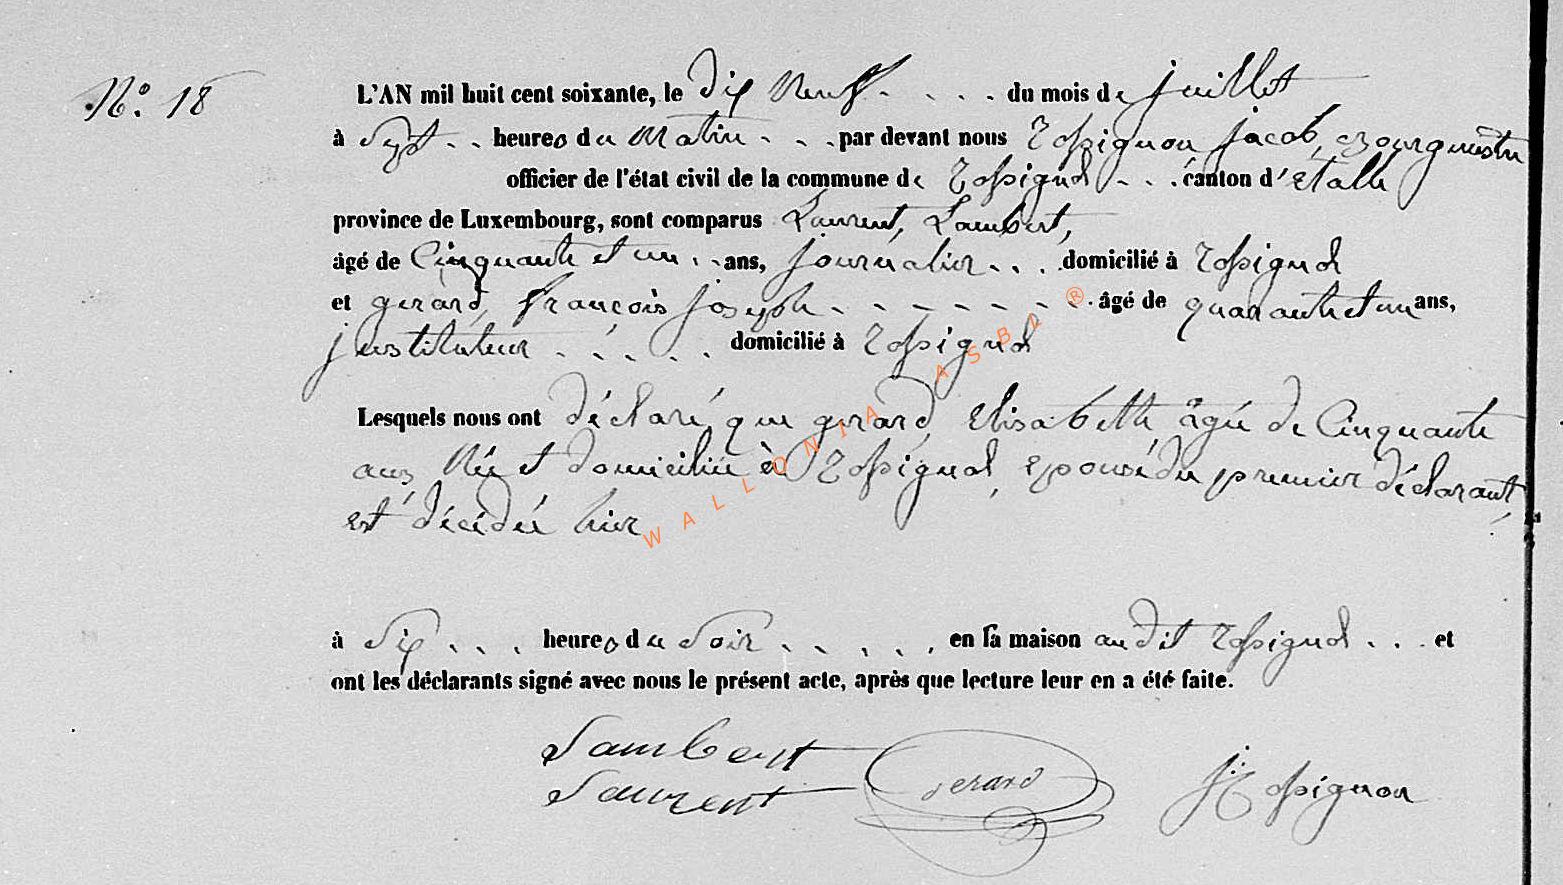 N.° 18
L'AN mil huit cent soixante, le dix Neuf du mois de juillet
à Sept heures du Matin par devant nous Rossignon jacob, Bourgmestre
officier de l'état civil de la commune de Rossignol canton d'Etalle
province de Luxembourg, sont comparus Laurent, Lambert,
âgé de Cinquante et un ans, journalier domicilié à Rossignol
et gerard, françois joseph âgé de quarante et un ans,
justituteur domicilié à Rossignol
Lesquels nous ont déclaré que gerard, Elisabeth âgée de Cinquante
ans Née et domiciliée à Rossignol, epouse du premier déclarant,
est décédée hier
à Six heures du Soir en sa maison audit Rossignol et
ont les déclarants signé avec nous le présent acte, après que lecture leur en a été faite.
Lambert
Laurent
Gerard
J Rossignon
WALLONIA ASBL ®